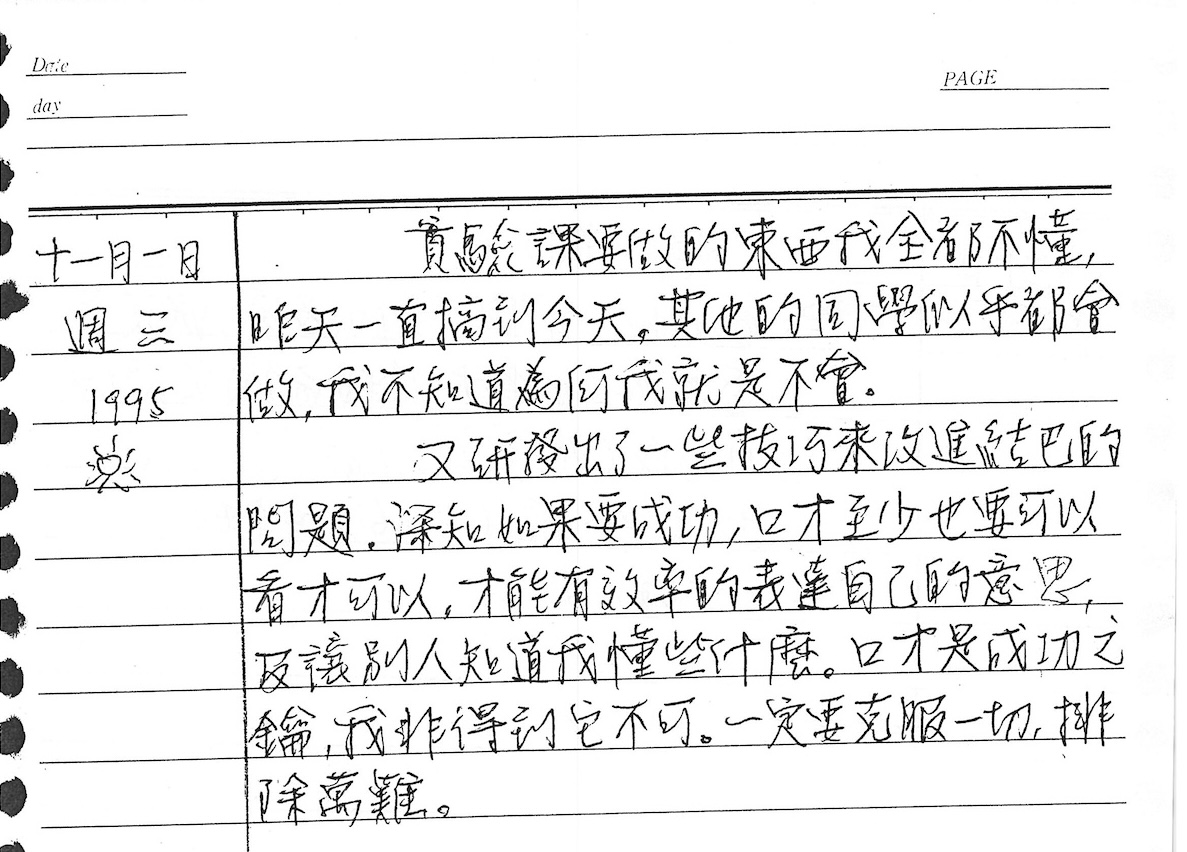 Date
day
PAGE
十一月一日
週三
1995
實驗課要做的東西我全都不懂,
昨天一直搞到今天。其他的同學似乎都會
做,我不知道為何我就是不會。
又研發出了一些技巧來改進結巴的
問題.深知如果要成功,口才至少也要可以
看才可以,才能有效率的表達自己的意思,
及讓別人知道我懂些什麼。口才是成功之
鑰,我非得到它不可。一定要克服一切,排
除萬難。